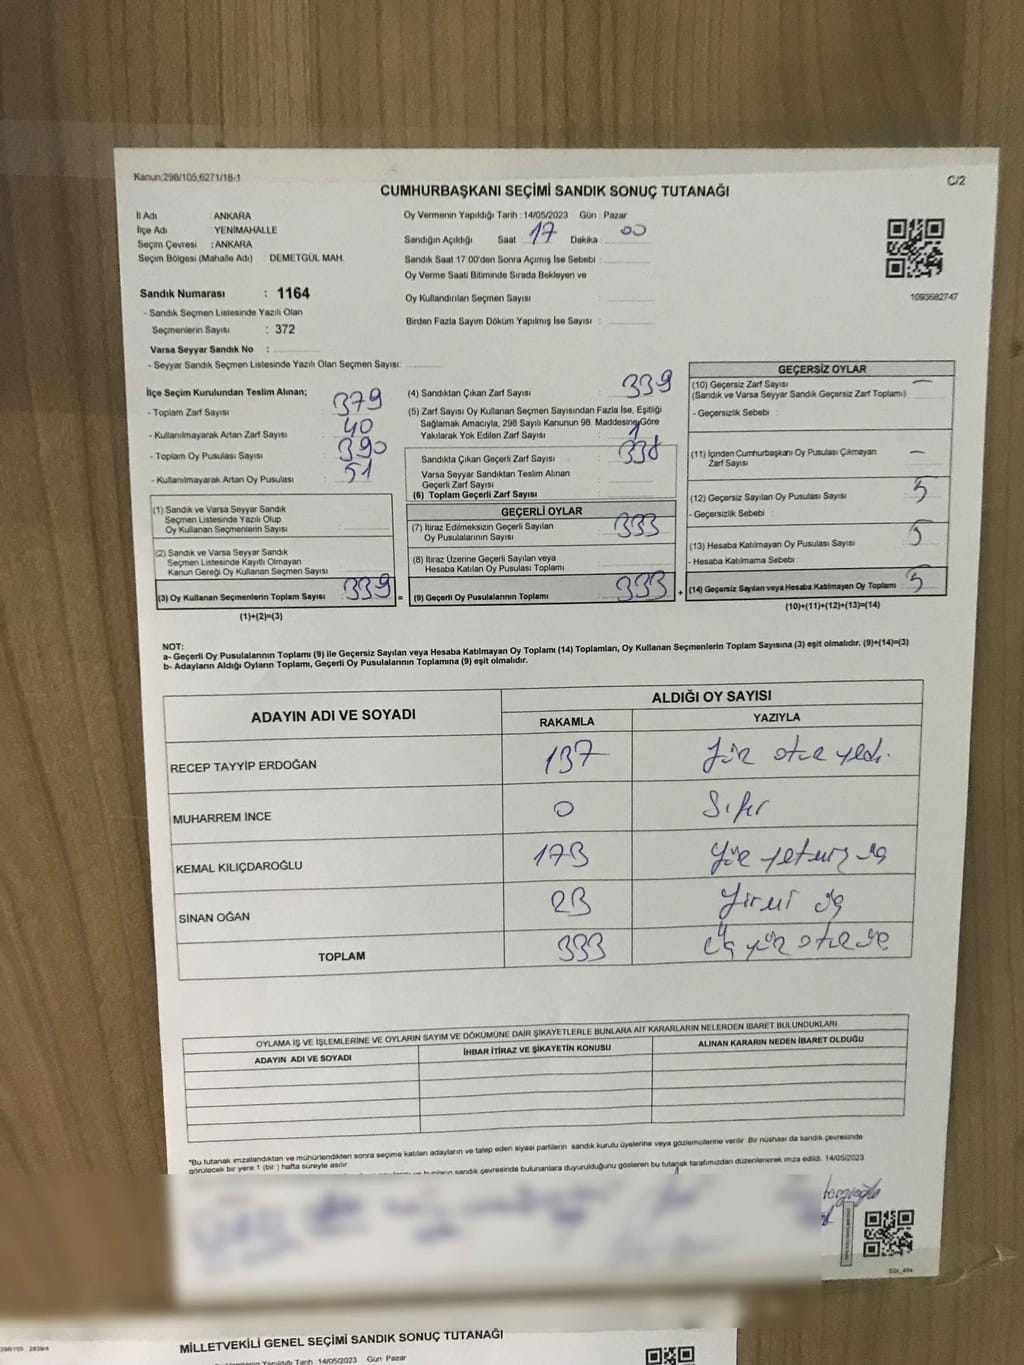 Kanun:298/105,6271/18-1
C/2
CUMHURBAŞKANI SEÇİMİ SANDIK SONUÇ TUTANAĞI
İl Adı : ANKARA
İlçe Adı : YENİMAHALLE
Seçim Çevresi : ANKARA
Seçim Bölgesi (Mahalle Adı) : DEMETGÜL MAH.
Sandık Numarası : 1164
- Sandık Seçmen Listesinde Yazılı Olan
Seçmenlerin Sayısı : 372
Varsa Seyyar Sandık No :
- Seyyar Sandık Seçmen Listesinde Yazılı Olan Seçmen Sayısı:
Oy Vermenin Yapıldığı Tarih : 14/05/2023 Gün : Pazar
Sandığın Açıldığı Saat : 17 Dakika : 00
Sandık Saat 17.00'den Sonra Açımış İse Sebebi :
Oy Verme Saati Bitiminde Sırada Bekleyen ve
Oy Kullandırılan Seçmen Sayısı :
Birden Fazla Sayım Döküm Yapılmış İse Sayısı :
1093682747
İlçe Seçim Kurulundan Teslim Alınan;
- Toplam Zarf Sayısı : 379
- Kullanılmayarak Artan Zarf Sayısı : 40
- Toplam Oy Pusulası Sayısı : 390
- Kullanılmayarak Artan Oy Pusulası : 51
(1) Sandık ve Varsa Seyyar Sandık
Seçmen Listesinde Yazılı Olup
Oy Kullanan Seçmenlerin Sayısı :
(2) Sandık ve Varsa Seyyar Sandık
Seçmen Listesinde Kayıtlı Olmayan
Kanun Gereği Oy Kullanan Seçmen Sayısı :
(3) Oy Kullanan Seçmenlerin Toplam Sayısı : 339 =
(1)+(2)=(3)
(4) Sandıktan Çıkan Zarf Sayısı : 339
(5) Zarf Sayısı Oy Kullanan Seçmen Sayısından Fazla İse, Eşitliği
Sağlamak Amacıyla, 298 Sayılı Kanunun 98. Maddesine Göre
Yakılarak Yok Edilen Zarf Sayısı : 1
Sandıkta Çıkan Geçerli Zarf Sayısı : 338
Varsa Seyyar Sandıktan Teslim Alınan
Geçerli Zarf Sayısı :
(6) Toplam Geçerli Zarf Sayısı :
GEÇERLİ OYLAR
(7) İtiraz Edilmeksizin Geçerli Sayılan
Oy Pusulalarının Sayısı : 333
(8) İtiraz Üzerine Geçerli Sayılan veya
Hesaba Katılan Oy Pusulası Toplamı :
(9) Geçerli Oy Pusulalarının Toplamı : 333 +
GEÇERSİZ OYLAR
(10) Geçersiz Zarf Sayısı : —
(Sandık ve Varsa Seyyar Sandık Geçersiz Zarf Toplamı)
- Geçersizlik Sebebi :
(11) İçinden Cumhurbaşkanı Oy Pusulası Çıkmayan : —
Zarf Sayısı
(12) Geçersiz Sayılan Oy Pusulası Sayısı : 5
- Geçersizlik Sebebi :
(13) Hesaba Katılmayan Oy Pusulası Sayısı : 5
- Hesaba Katılmama Sebebi :
(14) Geçersiz Sayılan veya Hesaba Katılmayan Oy Toplamı : 5
(10)+(11)+(12)+(13)=(14)
NOT:
a- Geçerli Oy Pusulalarının Toplamı (9) ile Geçersiz Sayılan veya Hesaba Katılmayan Oy Toplamı (14) Toplamları, Oy Kullanan Seçmenlerin Toplam Sayısına (3) eşit olmalıdır. (9)+(14)=(3)
b- Adayların Aldığı Oyların Toplamı, Geçerli Oy Pusulalarının Toplamına (9) eşit olmalıdır.
ADAYIN ADI VE SOYADI ALDIĞI OY SAYISI
RAKAMLA YAZIYLA
RECEP TAYYİP ERDOĞAN 137 Yüz otuz yedi.
MUHARREM İNCE 0 Sıfır
KEMAL KILIÇDAROĞLU 173 Yüz yetmiş üç
SİNAN OĞAN 23 Yirmi üç
TOPLAM 333 Üç yüz otuz üç
OYLAMA İŞ VE İŞLEMLERİNE VE OYLARIN SAYIM VE DÖKÜMÜNE DAİR ŞİKAYETLERLE BUNLARA AİT KARARLARIN NELERDEN İBARET BULUNDUKLARI
ADAYIN ADI VE SOYADI İHBAR İTİRAZ VE ŞİKAYETİN KONUSU ALINAN KARARIN NEDEN İBARET OLDUĞU
*Bu tutanak imzalandıktan ve mühürlendikten sonra seçime katılan adayların ve talep eden siyasi partilerin sandık kurulu üyelerine veya gözlemcilerine verilir. Bir nüshası da sandık çevresinde
görülecek bir yere 1 (bir) hafta süreyle asılır.
bunların sandık çevresinde bulunanlara duyurulduğunu gösteren bu tutanak tarafımızdan düzenlenerek imza edildi. 14/05/2023
MİLLETVEKİLİ GENEL SEÇİMİ SANDIK SONUÇ TUTANAĞI
Yapıldığı Tarih : 14/05/2023 Gün: Pazar